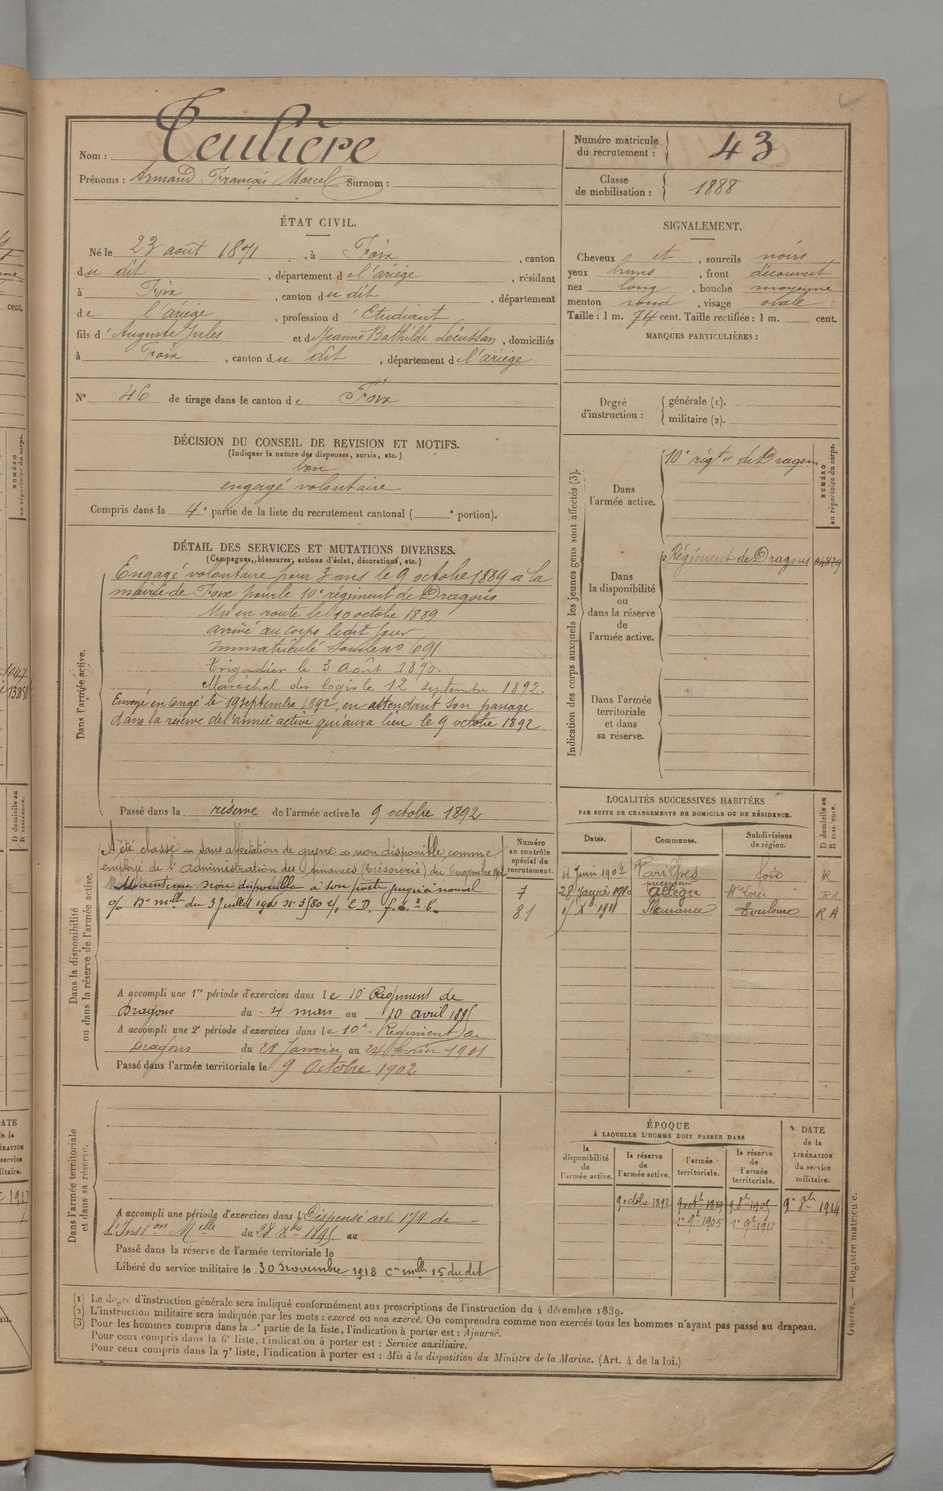 Nom : Teulière
Prénoms : Armand François Marcel Surnom :
Numéro matricule du recrutement : 43
Classe de mobilisation : 1888
ÉTAT CIVIL.
Né le 23 août 1871, à Foix, canton
du dit, département de l'ariège, résidant
à Foix, canton du dit, département
de l'ariège, profession d'Etudiant
fils d'Auguste Jules et de Jeanne Bathilde Lécussan, domiciliés
à Foix, canton du dit, département de l'ariège
N° 46 de tirage dans le canton de Foix
SIGNALEMENT.
Cheveux et, sourcils noirs
yeux bruns, front découvert
nez long, bouche moyenne
menton rond, visage ovale
Taille : 1 m. 74 cent. Taille rectifiée : 1 m. cent.
MARQUES PARTICULIÈRES :
Degré d'instruction : générale (1).
militaire (2).
DÉCISION DU CONSEIL DE REVISION ET MOTIFS.
(Indiquer la nature des dispenses, sursis, etc.)
bon
engagé volontaire
Compris dans la 4e partie de la liste du recrutement cantonal ( e portion).
DÉTAIL DES SERVICES ET MUTATIONS DIVERSES.
(Campagnes, blessures, actions d'éclat, décorations, etc.)
Dans l'armée active.
Engagé volontaire pour 3 ans le 9 octobre 1889 à la
mairie de Foix pour le 10e régiment de Dragons
Mis en route le 10 octobre 1889
arrivé au corps ledit jour
immatriculé sous le n° 691
Brigadier le 3 Août 1890.
Maréchal des logis le 12 septembre 1892.
Envoyé en congé le 19 septembre 1892, en attendant son passage
dans la réserve de l'armée active qui aura lieu le 9 octobre 1892
Passé dans la réserve de l'armée active le 9 octobre 1892
Indication des corps auxquels les jeunes gens sont affectés (3).
NUMÉRO au répertoire du corps.
Dans l'armée active.
10e régt de Dragons
Dans la disponibilité ou dans la réserve de l'armée active.
Régiment de Dragons
Dans l'armée territoriale et dans sa réserve.
Dans la disponibilité ou dans la réserve de l'armée active.
A été classé dans affectation de guerre non disponible, comme
employé de l'administration des finances (trésorerie)
non disponible à son poste
Numéro au contrôle spécial du recrutement.
7
81
A accompli une 1re période d'exercices dans le 10e Régiment de
Dragons du 4 mars au 10 avril
A accompli une 2e période d'exercices dans le 10e Régiment de
Dragons du 28 Janvier au 24 février 1901
Passé dans l'armée territoriale le 9 Octobre 1902
LOCALITÉS SUCCESSIVES HABITÉES
PAR SUITE DE CHANGEMENTS DE DOMICILE OU DE RÉSIDENCE.
Dates. Communes. Subdivisions de région. D domicile ou R résidence.
Juin 1902 Varilhes Foix R
28 Allègre Hte Loire
1911 Fleurance Toulouse R A
Dans l'armée territoriale et dans sa réserve.
A accompli une période d'exercices dans le Dispensé art. 174 de
l'Inston Melle du 28 Xbre 1895 au
Passé dans la réserve de l'armée territoriale le
Libéré du service militaire le 30 Novembre 1918 Cre Melle 15 du dit
ÉPOQUE
À LAQUELLE L'HOMME DOIT PASSER DANS
la disponibilité de l'armée active. la réserve de l'armée active. l'armée territoriale. la réserve de l'armée territoriale.
DATE de la LIBÉRATION du service militaire.
9 octobre 1892
9 8bre 1914
(1) Le degré d'instruction générale sera indiqué conformément aux prescriptions de l'instruction du 4 décembre 1889.
(2) L'instruction militaire sera indiquée par les mots : exercé ou non exercé. On comprendra comme non exercés tous les hommes n'ayant pas passé au drapeau.
(3) Pour les hommes compris dans la 5e partie de la liste, l'indication à porter est : Ajourné.
Pour ceux compris dans la 6e liste, l'indication à porter est : Service auxiliaire.
Pour ceux compris dans la 7e liste, l'indication à porter est : Mis à la disposition du Ministre de la Marine. (Art. 4 de la loi.)
Guerre. — Registre matricule.